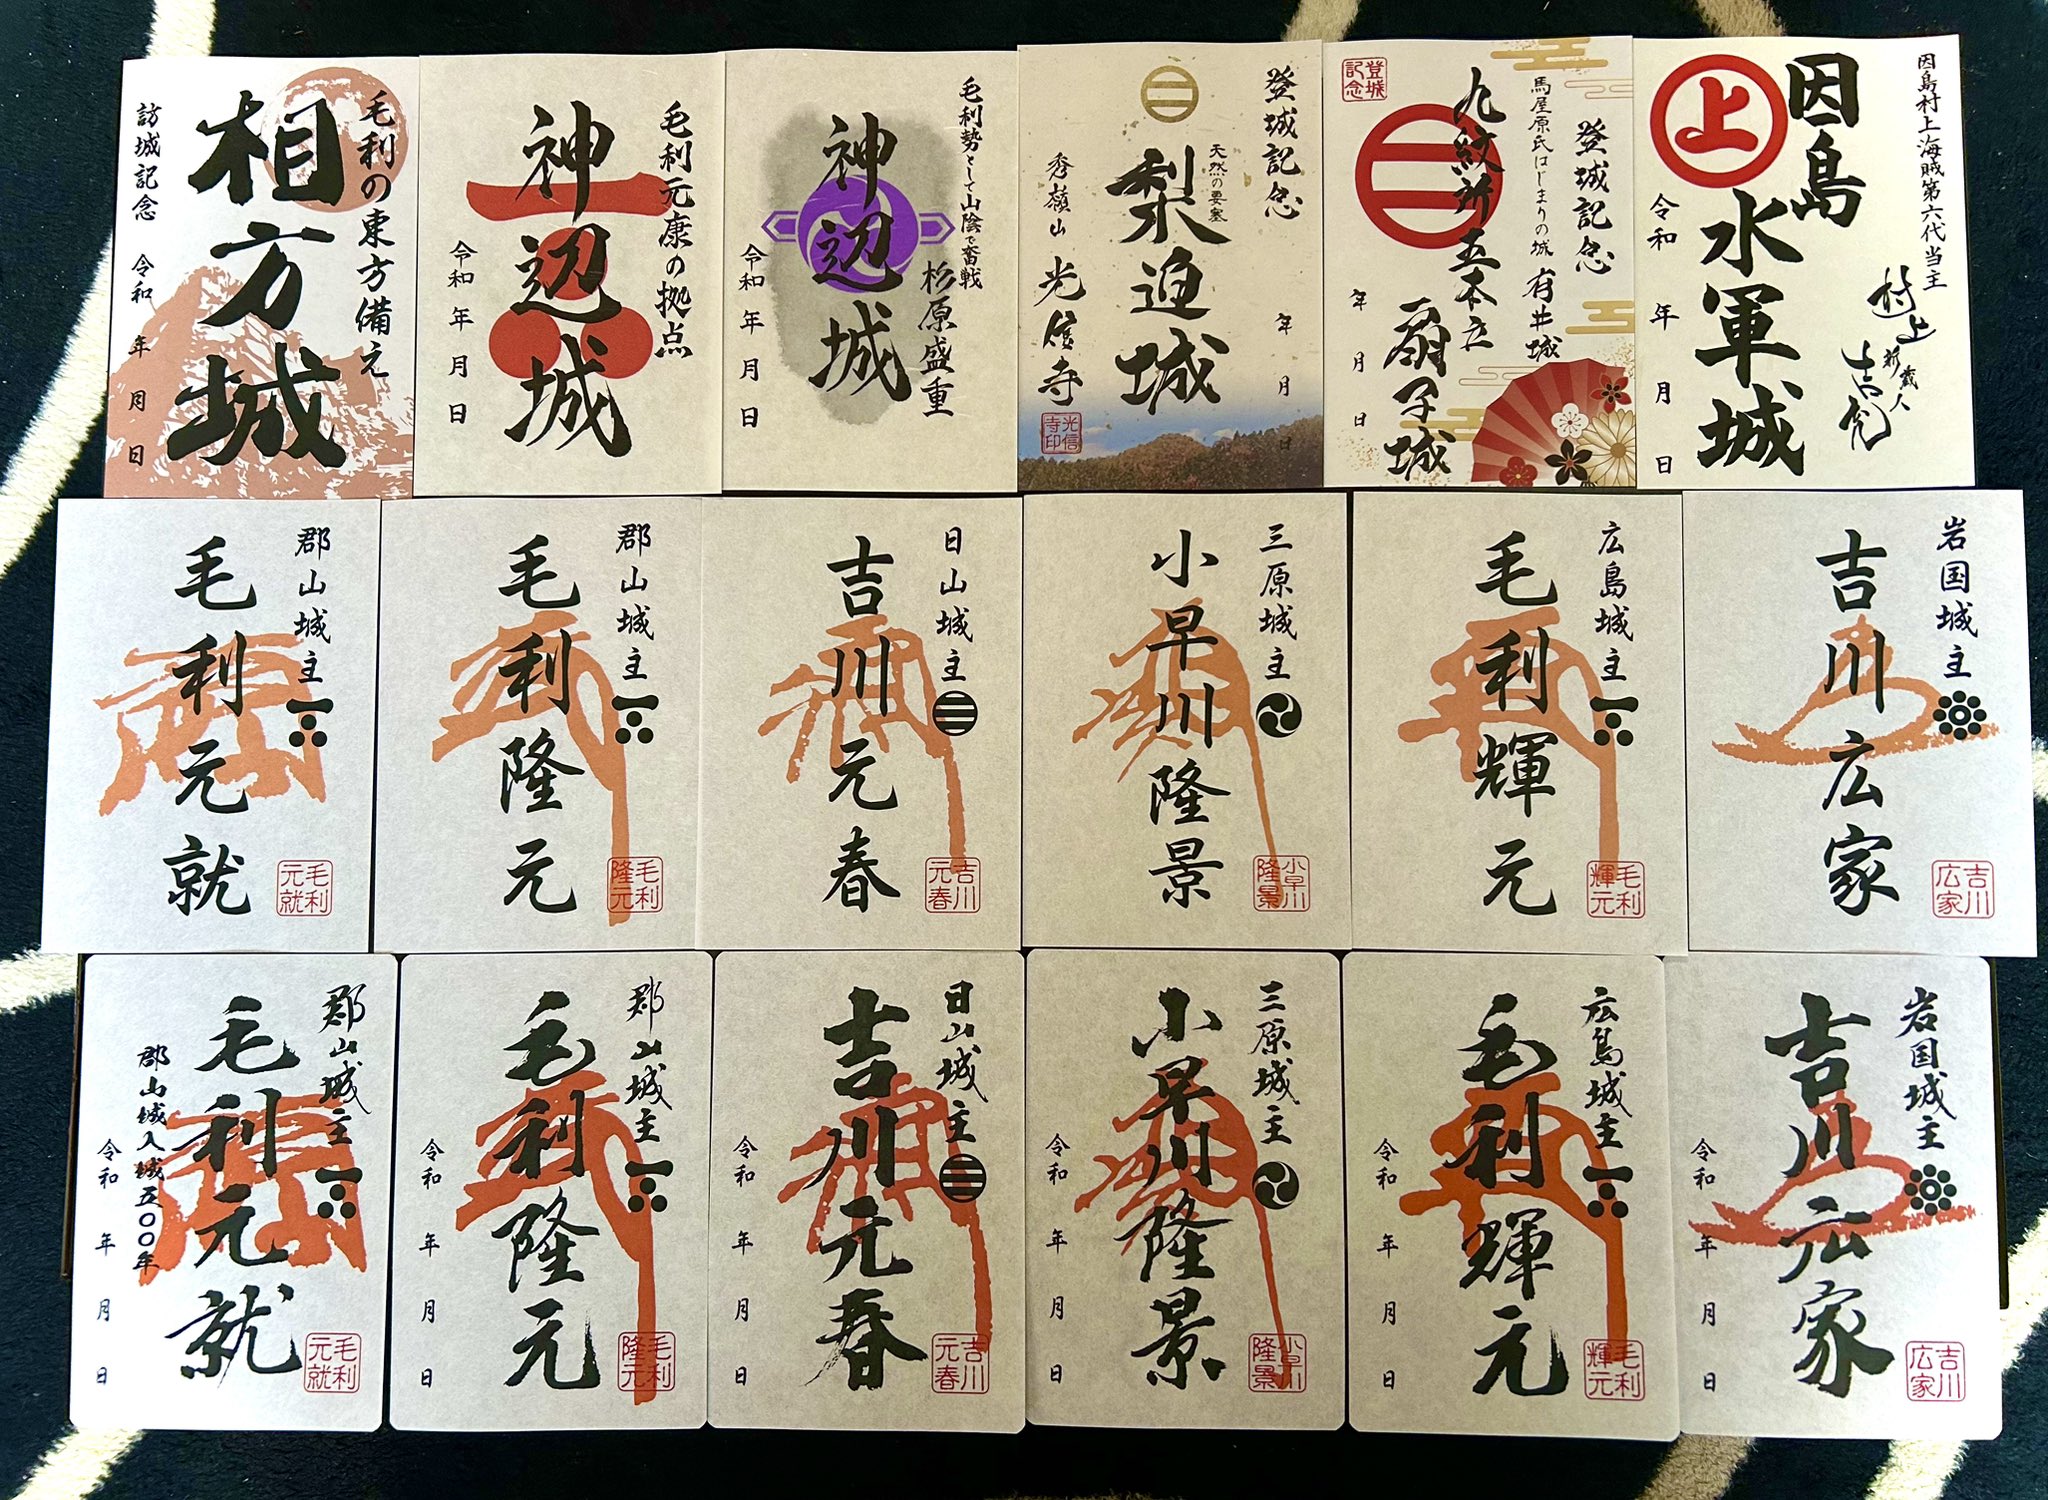 毛利の東方備え
相方城
訪城記念
令和 年 月 日
毛利元康の拠点
神辺城
令和 年 月 日
毛利勢として山陰で奮戦
杉原盛重
神辺城
令和 年 月 日
登城記念
天然の要塞
梨迫城
年 月 日
秀嶺山 光信寺
光信寺印
登城記念
馬屋原氏はじまりの城 有井城
九紋所 五本立 扇子城
年 月 日
登城記念
因島村上海賊第六代当主
村上新蔵人吉充
因島
水軍城
上
令和 年 月 日
郡山城主
毛利元就
毛利元就
郡山城主
毛利隆元
毛利隆元
日山城主
吉川元春
吉川元春
三原城主
小早川隆景
小早川隆景
広島城主
毛利輝元
毛利輝元
岩国城主
吉川広家
吉川広家
郡山城主
毛利元就
郡山城入城五〇〇年
令和 年 月 日
毛利元就
郡山城主
毛利隆元
令和 年 月 日
毛利隆元
日山城主
吉川元春
令和 年 月 日
吉川元春
三原城主
小早川隆景
令和 年 月 日
小早川隆景
広島城主
毛利輝元
令和 年 月 日
毛利輝元
岩国城主
吉川広家
令和 年 月 日
吉川広家